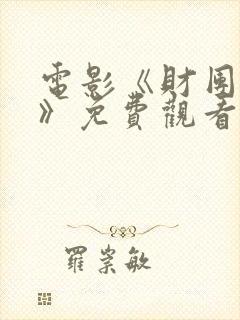 電影《財團
》免費觀看
羅崇敏